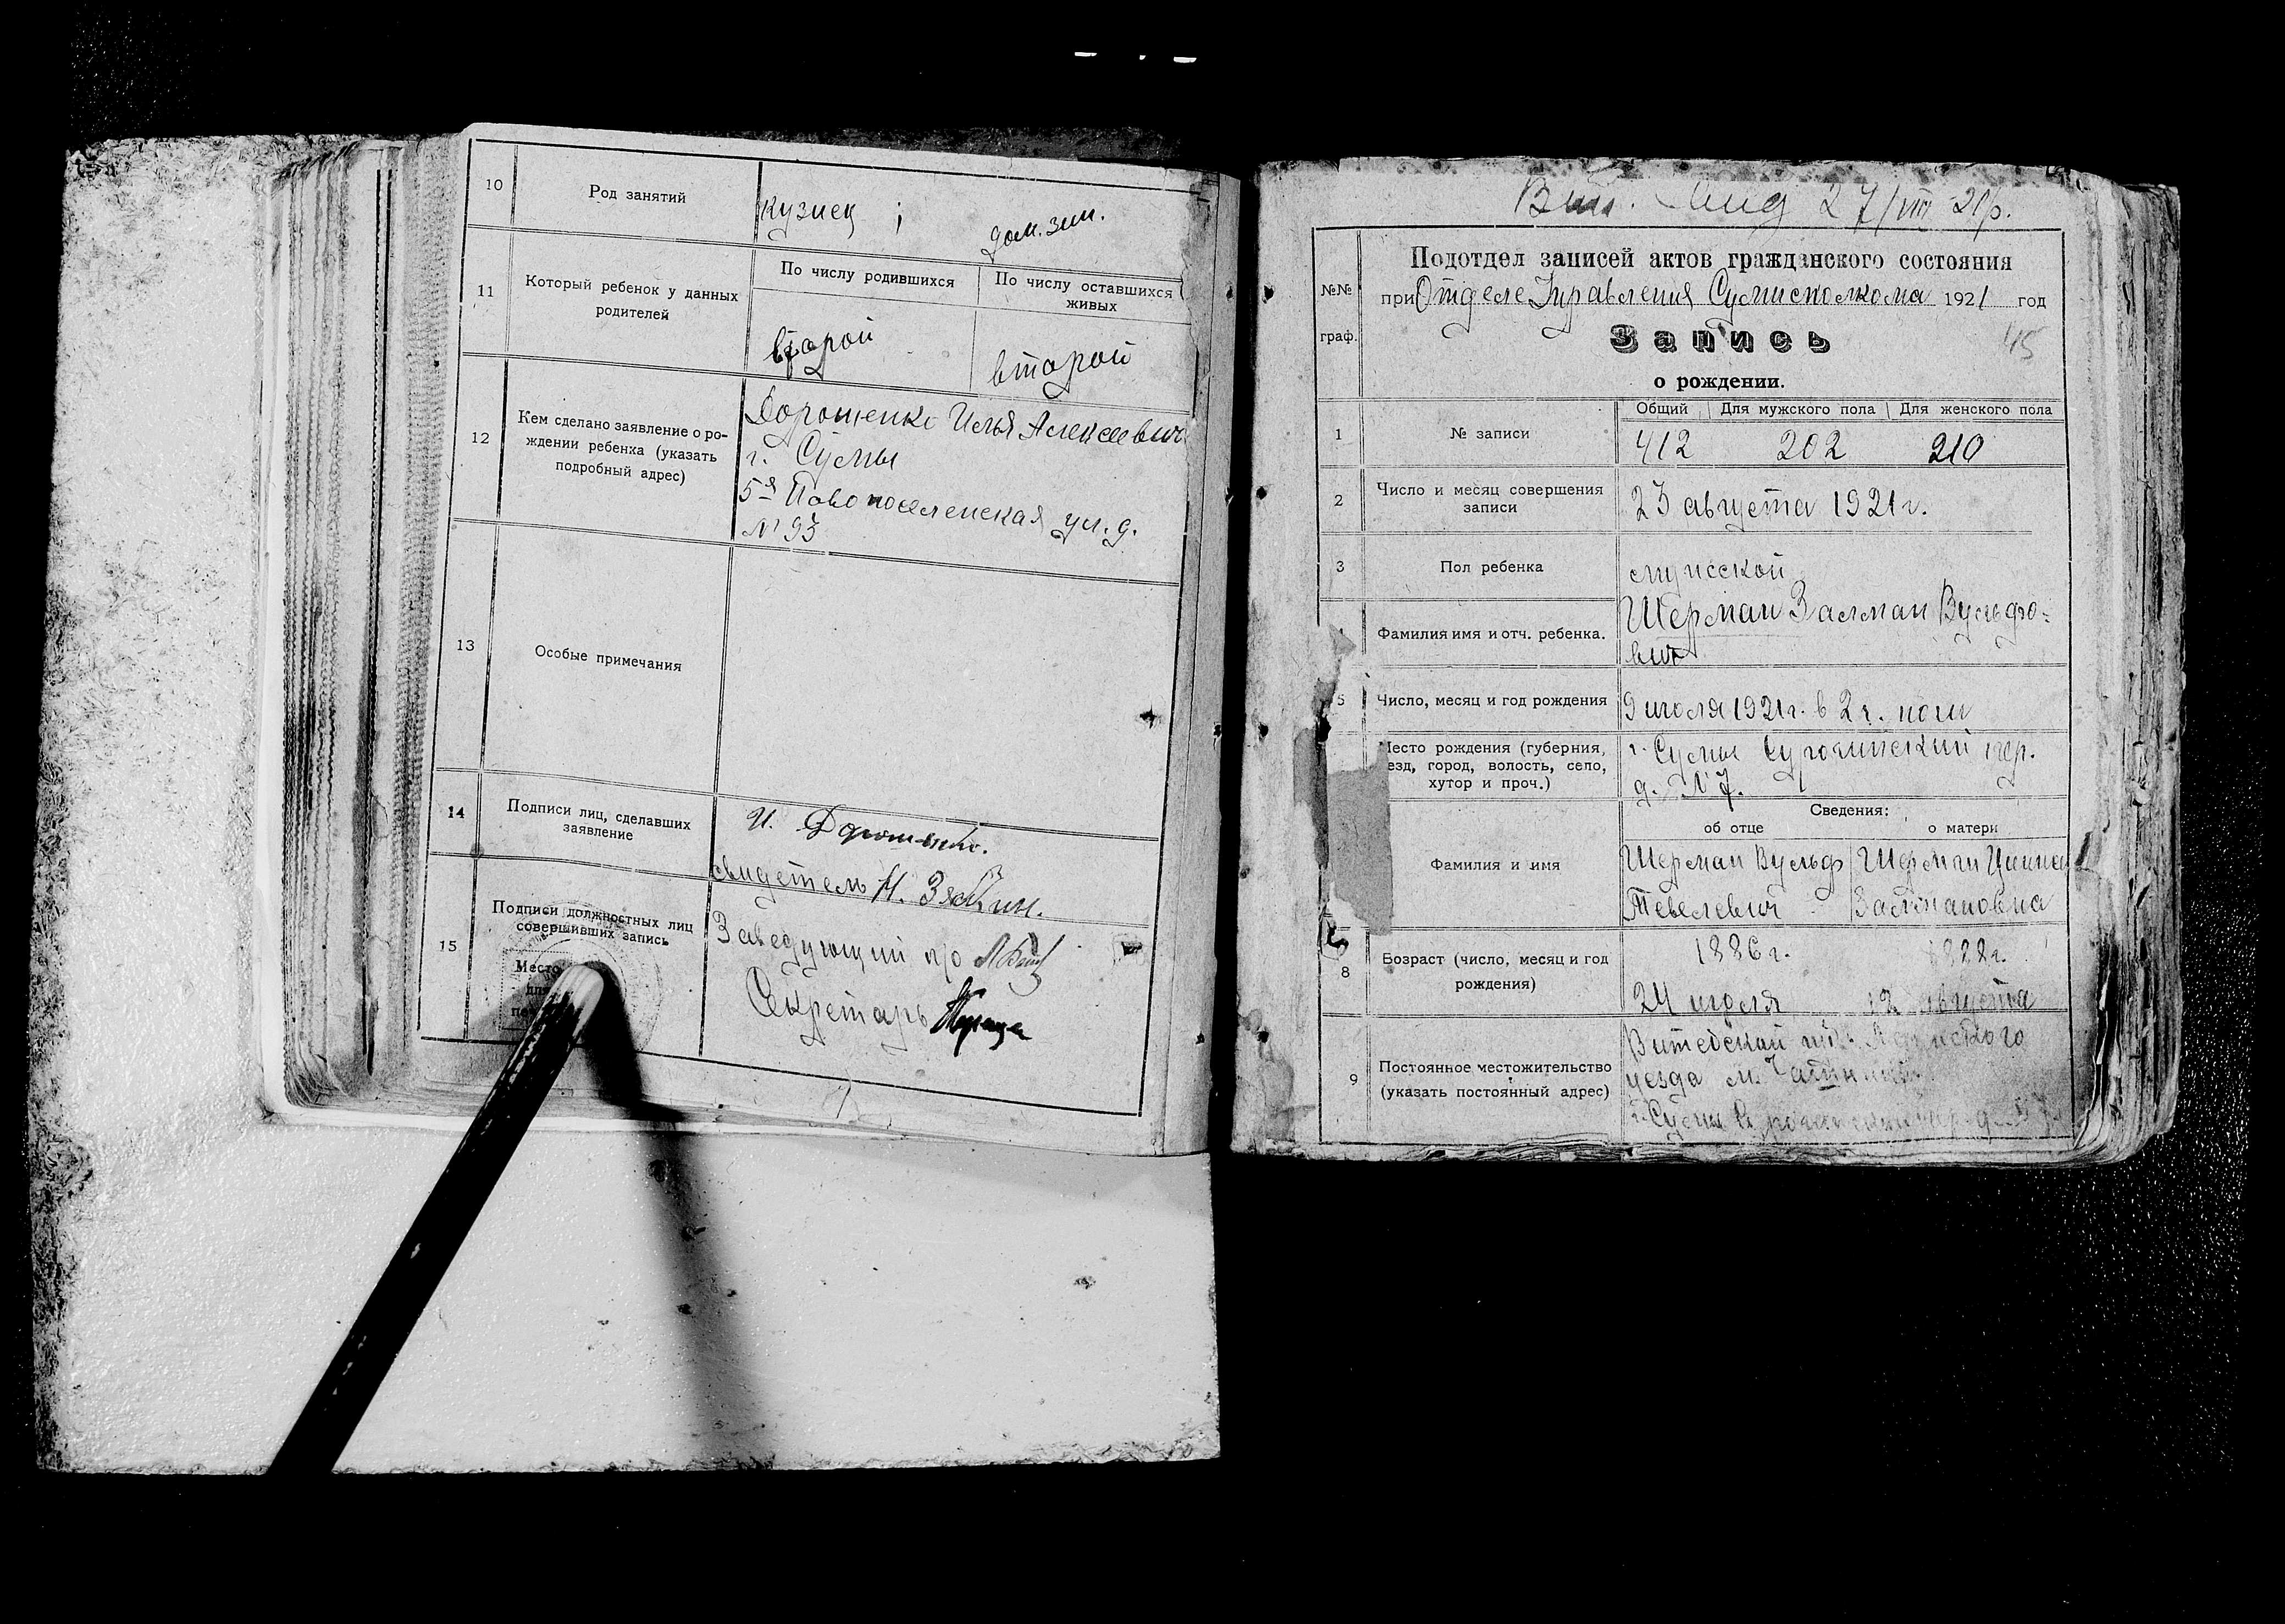 10
Род занятий
кузнец ; дом. зан.
11
Который ребенок у данных
родителей
По числу родившихся
По числу оставшихся
живых
второй
второй
12
Кем сделано заявление о ро-
ждении ребенка (указать
подробный адрес)
Дорошенко Илья Алексеевич
г. Сумы
5я Новопоселенская ул. д.
№ 93
13
Особые примечания
14
Подписи лиц, сделавших
заявление
И. Дорошенко.
свидетель Н.
15
Подписи должностных лиц
совершивших запись
Место
для
Заведующий п/о
Секретарь
27/VIII 21р.
№№
граф.
Подотдел записей актов гражданского состояния
при Отделе Управления Сумисполкома 1921 год
Запись
45
о рождении.
1
№ записи
Общий Для мужского пола Для женского пола
412 202 210
2
Число и месяц совершения
записи
23 августа 1921 г.
3
Пол ребенка
мужской
Фамилия имя и отч. ребенка.
Шерман Залман Вульфо-
вич
5
Число, месяц и год рождения
9 июля 1921 г. в 2 ч. ночи
Место рождения (губерния,
езд, город, волость, село,
хутор и проч.)
г. Сумы Суточинский пер.
д. № 7.
Сведения:
об отце
о матери
Фамилия и имя
Шерман Вульф
Тевелевич
Шерман Ципа
Залмановна
8
Возраст (число, месяц и год
рождения)
1886 г.
24 июля
1888 г.
12 августа
9
Постоянное местожительство
(указать постоянный адрес)
Витебской
уезда м.
г. Сумы пер. д. № 7.